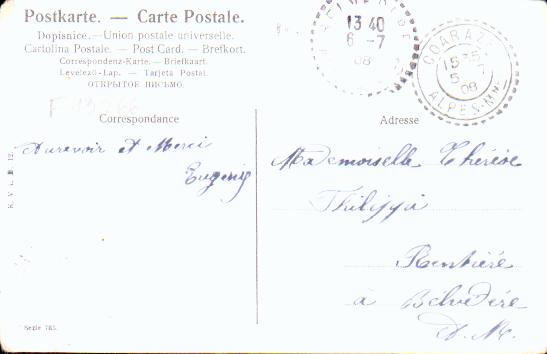 Postkarte. — Carte Postale.
Dopisnice.—Union postale universelle.
Cartolina Postale. — Post Card. — Brefkort.
Correspondenz-Karte.—Briefkaart.
Levelező-Lap. — Tarjeta Postal.
ОТКРЫТОЕ ПИСЬМО.
13 40
6 -7
08
COARAZE
15 35
5 -7
08
ALPES-MMES
Correspondance
Adresse
Aurevoir et Merci
Eugenie
Mademoiselle Thérèse
Philippi
Rentière
à Belvédère
A. M.
Serie 785.